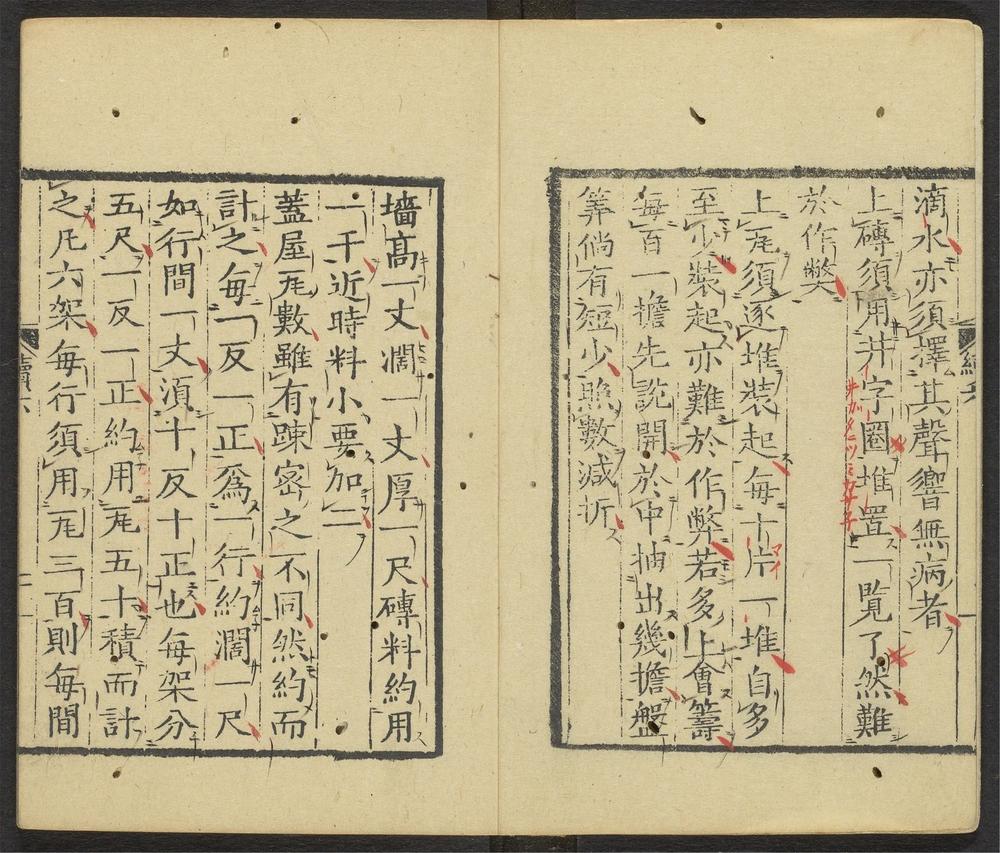 滴水亦須擇其聲響無病者
上磚須用井字圈堆置一覧了然難
於作弊
上瓦須逐堆裝起每十片一堆自多
至少裝起亦難於作弊若多上會籌
每百一擔先説開於中抽出幾擔盤
筭倘有短少照數減折
墻高一丈濶一丈厚一尺磚料約用
一千近時料小要加二
蓋屋瓦數雖有踈密之不同然約而
計之每一反一正爲一行約濶一尺
如行間一丈湏十反十正也每架分
五尺一反一正約用瓦五十積而計
之凡六架每行須用瓦三百則每間